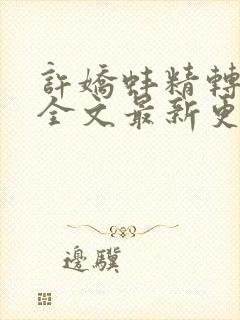 許嬌蚌精轉
全文最新更
邊驥